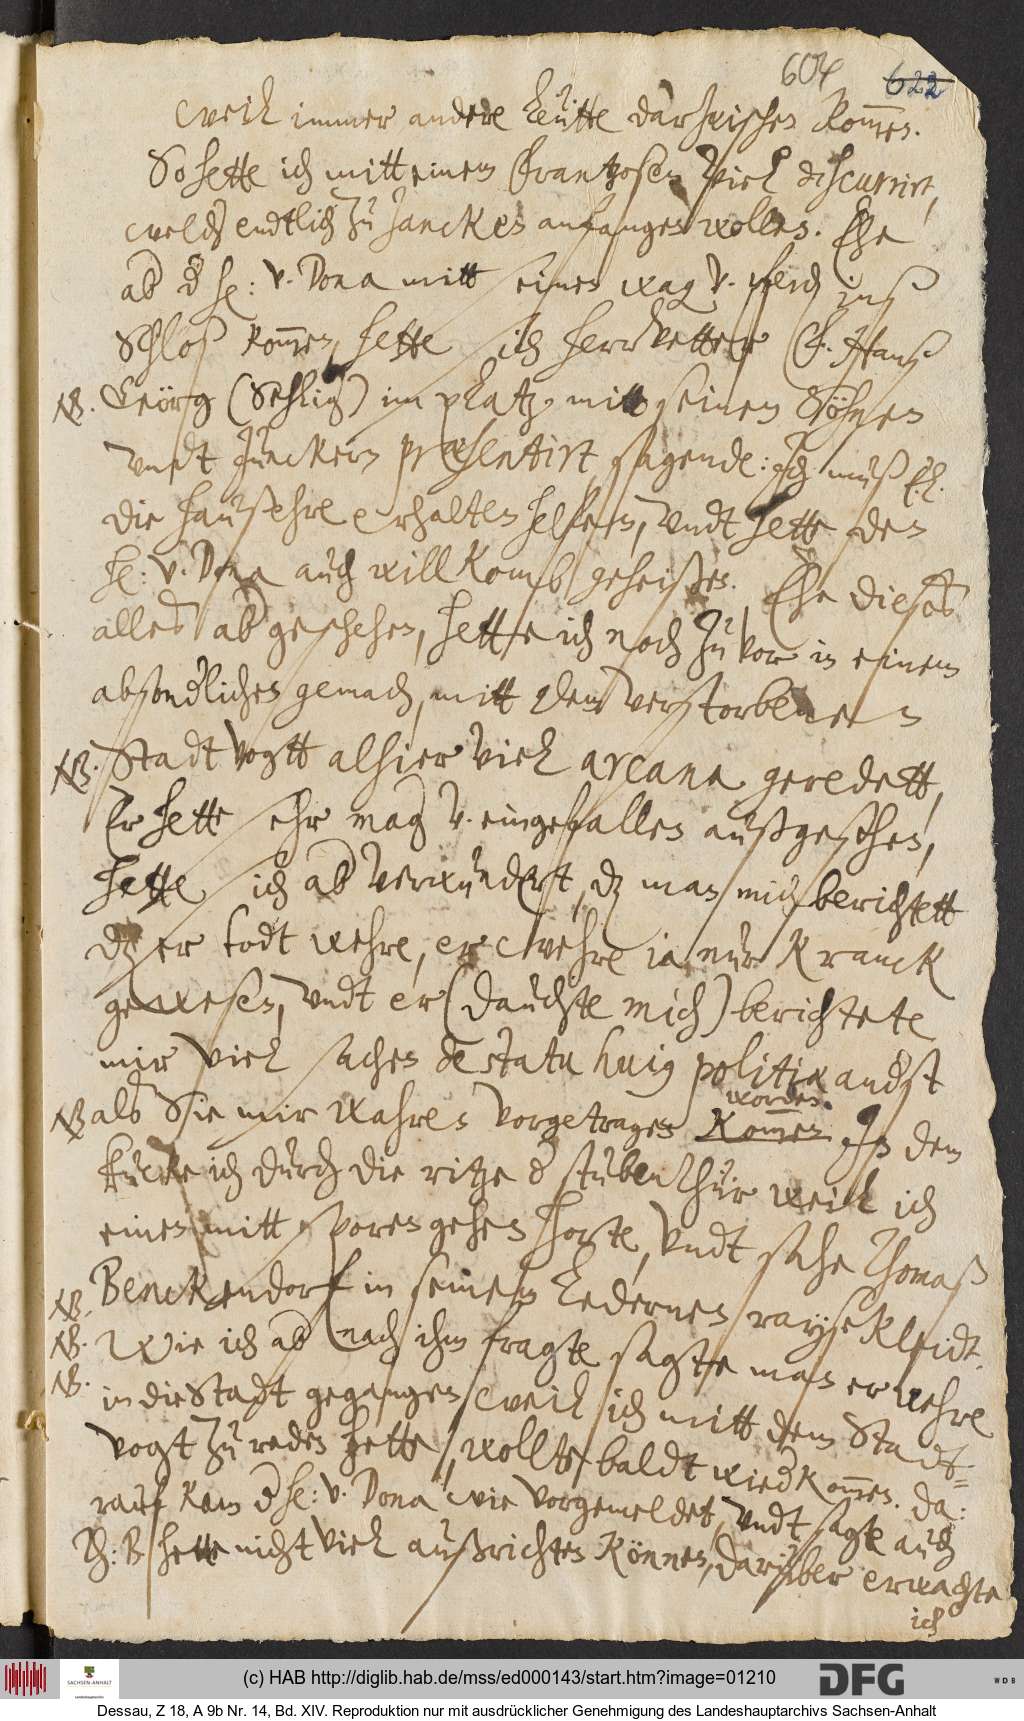 604 622
weil immer andere Leütte darzwischen kom̅en.
So hette ich mitt einem Frantzosen viel discurrirt,
welch endtlich zu zancken anfangen wollen. Ehe
ab d h: v. Dona mitt seinen wag v. pferd ins
Schloß kom̅en, hette ich herr Vetter F. Hans
NB. Geörg (Sehlig) im platz mitt seinen Söhnen
undt Junckern præsentirt, sagende: Ich muß E. L.
die haußehre erhalten helfen, undt hette den
h: v. Dona auch willkomb geheißen. Ehe dieses
alles ab geschehen, hette ich noch zu vor in einem
absonderlichen gemach, mitt dem verstorbenen
NB. Stadtvogtt alhier viel arcana geredett,
Er hette sehr mag v. eingefallen außgesehen,
hette ich ab verwundert, dz man mich berichtett
dz er todt wehre, er wehre ia nur kranck
gewesen, undt er (dauchte mich) berichtete
mir viel sachen de statu huig politix anders
worden.
NB als Sie mir wahren vorgetragen kom̅en. In dem
kucke ich durch die ritze d stubenthür weil ich
einen mitt sporen gehen horte, undt sahe Thomaß
NB. Benckendorf in seinem Ledernen rayseKleidt.
NB. Wie ich ab nach ihm fragte sagte man er wehre
NB. in die Stadt gegangen weil ich mitt dem Stadt-
vogt zu reden hette, wollte baldt wiedkom̅en. Da:
rauf kam d h: v. Dona wie vorgemeldet, undt sagte auch
Th: B hette nicht viel außrichten können, darüber erwachte
ich
(c) HAB http://diglib.hab.de/mss/ed000143/start.htm?image=01210
SACHSEN-ANHALT
DFG
WDB
Dessau, Z 18, A 9b Nr. 14, Bd. XIV. Reproduktion nur mit ausdrücklicher Genehmigung des Landeshauptarchivs Sachsen-Anhalt